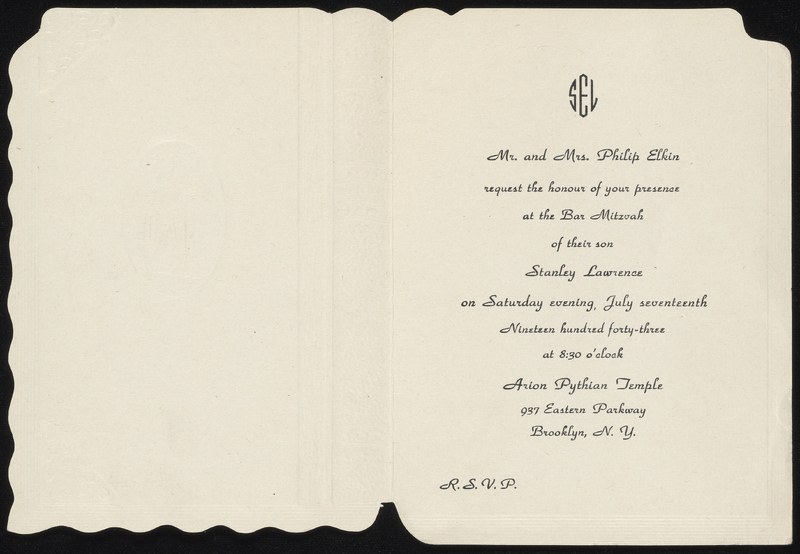 SEL
Mr. and Mrs. Philip Elkin
request the honour of your presence
at the Bar Mitzvah
of their son
Stanley Lawrence
on Saturday evening, July seventeenth
Nineteen hundred forty-three
at 8:30 o'clock
Arion Pythian Temple
937 Eastern Parkway
Brooklyn, N. Y.
R.S.V.P.